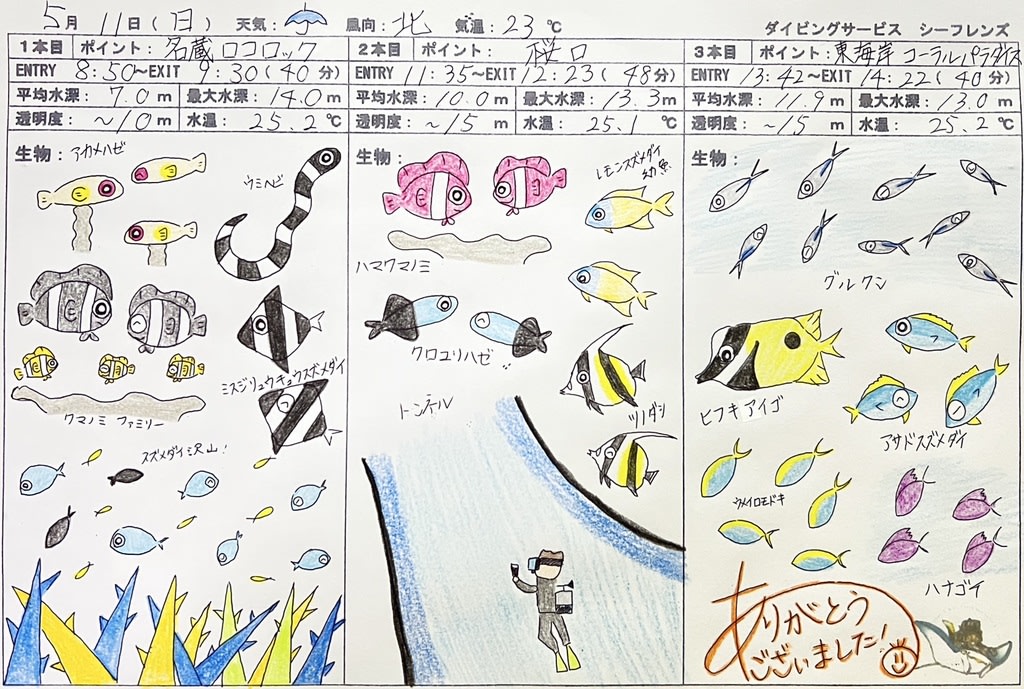 5月 11日(日) 天気: 風向: 北 気温: 23 ℃
ダイビングサービス シーフレンズ
1本目 ポイント: 名蔵ロコロック
ENTRY 8:50～EXIT 9:30(40分)
平均水深: 7.0 m 最大水深: 14.0 m
透明度: ～10 m 水温: 25.2 ℃
生物:
アカメハゼ
ウミヘビ
ミスジリュウキュウスズメダイ
クマノミ ファミリー
スズメダイ沢山!
2本目 ポイント: 桜口
ENTRY 11:35～EXIT 12:23(48分)
平均水深: 10.0 m 最大水深: 13.3 m
透明度: ～15 m 水温: 25.1 ℃
生物:
レモンスズメダイ
幼魚
ハマクマノミ
クロユリハゼ
トンネル
ツノダシ
3本目 ポイント: 東海岸 コーラルパラダイス
ENTRY 13:42～EXIT 14:22(40分)
平均水深: 11.9 m 最大水深: 13.0 m
透明度: ～15 m 水温: 25.2 ℃
生物:
グルクン
ヒフキアイゴ
アサドスズメダイ
ウメイロモドキ
ハナゴイ
ありがとう
ございました!